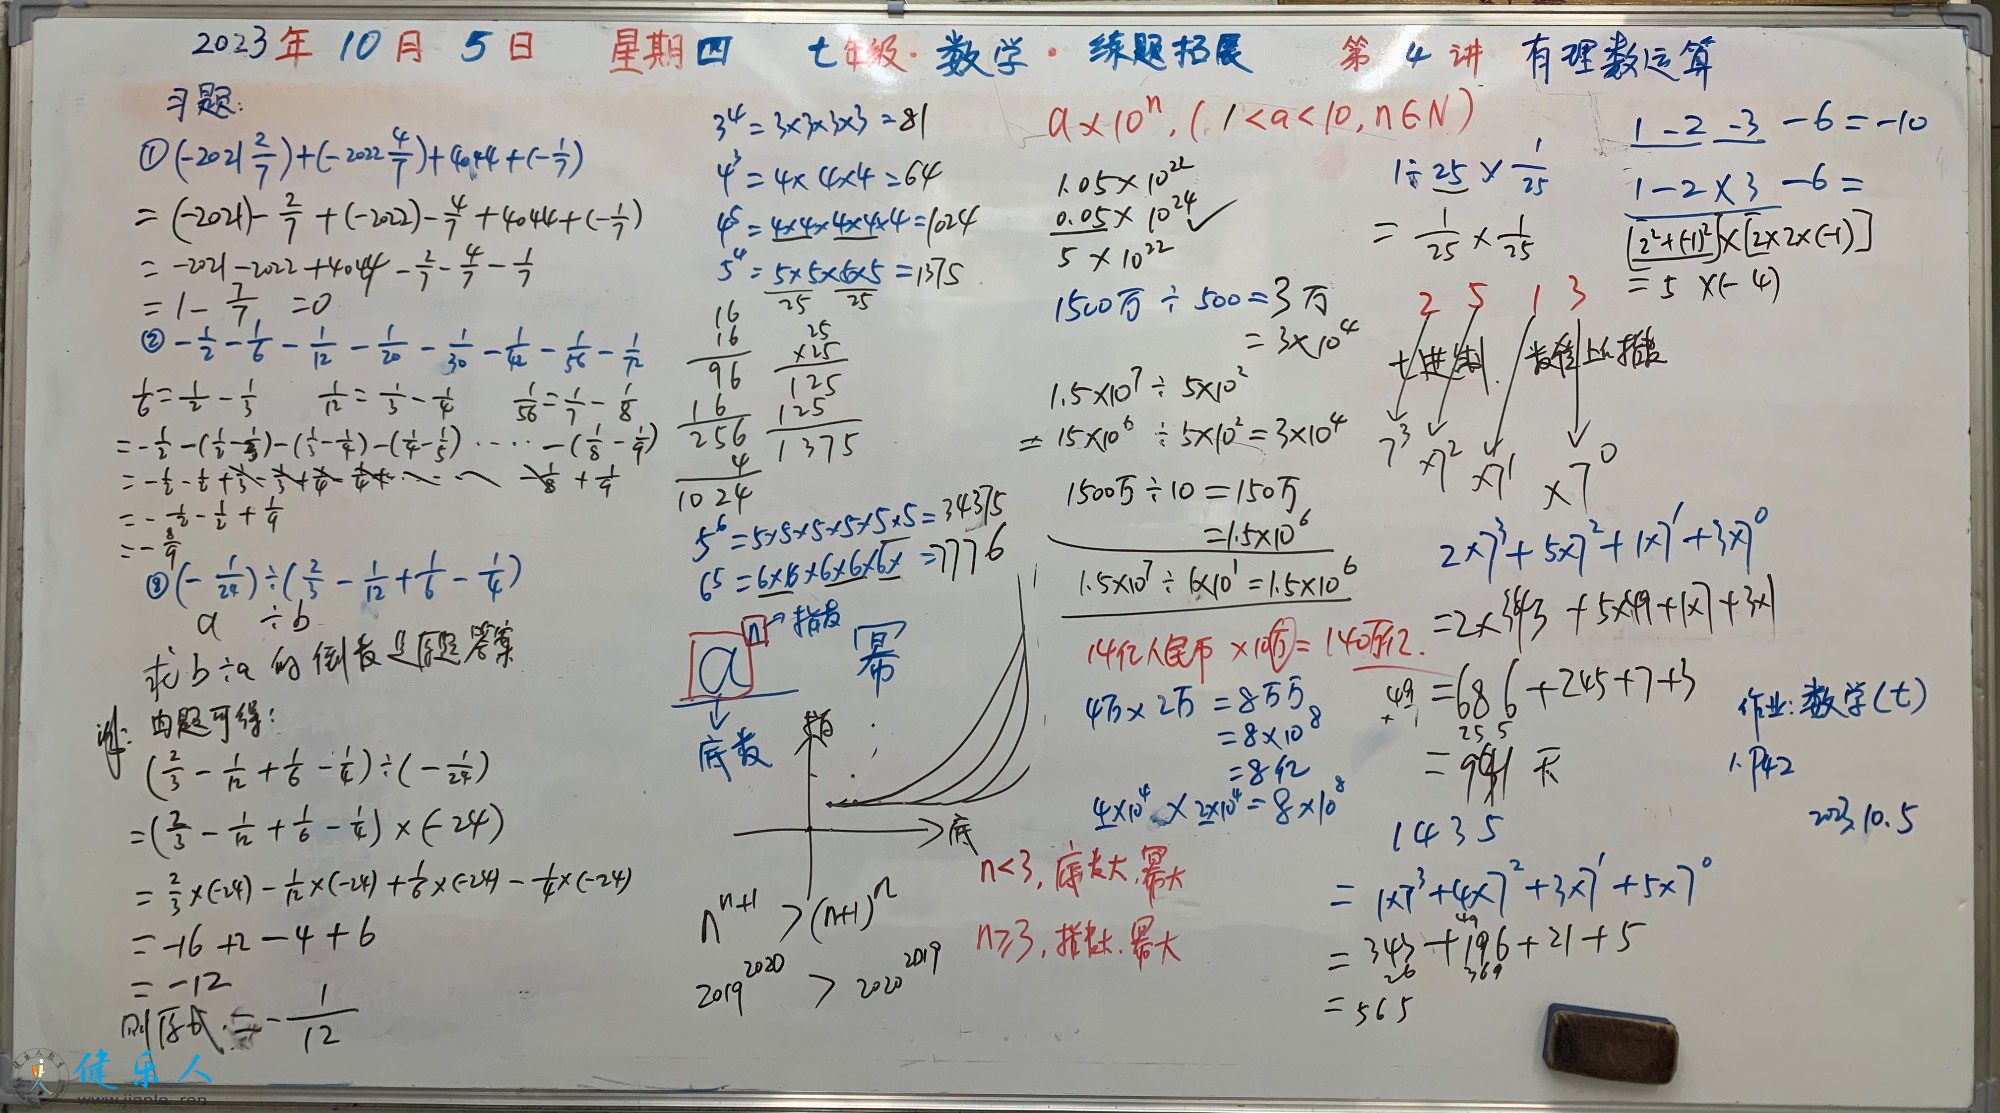 2023年10月5日 星期四 七年级·数学·练题拓展 第4讲 有理数运算
习题:
①(-2021 2/7)+(-2022 4/7)+4044+(-1/7)
=(-2021)-2/7+(-2022)-4/7+4044+(-1/7)
=-2021-2022+4044-2/7-4/7-1/7
=1-7/7=0
②-1/2-1/6-1/12-1/20-1/30-1/42-1/56-1/72
1/6=1/2-1/3 1/12=1/3-1/4 1/56=1/7-1/8
=-1/2-(1/2-1/3)-(1/3-1/4)-(1/4-1/5)……-(1/8-1/9)
=-1/2-1/2+1/3-1/3+1/4-1/4+……-1/8+1/9
=-1/2-1/2+1/9
=-8/9
③(-1/24)÷(2/3-1/12+1/6-1/4)
a÷b
求b÷a的倒数是原题答案
解:由题可得:
(2/3-1/12+1/6-1/4)÷(-1/24)
=(2/3-1/12+1/6-1/4)×(-24)
=2/3×(-24)-1/12×(-24)+1/6×(-24)-1/4×(-24)
=-16+2-4+6
=-12
则原式=-1/12
3⁴=3×3×3×3=81
4³=4×4×4=64
4⁵=4×4×4×4×4=1024
5⁴=5×5×5×5=1375
25 25
16
16
96
16
256
4
1024
25
×25
125
125
1375
5⁶=5×5×5×5×5×5=34375
6⁵=6×6×6×6×6×=7776
aⁿ→指数
幂
底数
指
底
nⁿ⁺¹>(n+1)ⁿ
2019²⁰²⁰>2020²⁰¹⁹
a×10ⁿ,(1<a<10,n∈N)
1.05×10²²
0.05×10²⁴✓
5×10²²
1500万÷500=3万
=3×10⁴
1.5×10⁷÷5×10²
=15×10⁶÷5×10²=3×10⁴
1500万÷10=150万
=1.5×10⁶
1.5×10⁷÷1×10¹=1.5×10⁶
14亿人民币×10万=140万亿.
4万×2万=8万万
=8×10⁸
=8亿
4×10⁴×2×10⁴=8×10⁸
n<3,底数大,幂大
n≥3,指数大.幂大
1÷25×1/25
=1/25×1/25
2 5 1 3
七进制. 数位上的指数
7³ ×7² ×7¹ ×7⁰
2×7³+5×7²+1×7¹+3×7⁰
=2×343+5×49+1×7+3×1
=686+245+7+3
49
25 5
=941天
1435
=1×7³+4×7²+3×7¹+5×7⁰
49
=343+196+21+5
26 369
=565
1-2-3-6=-10
1-2×3-6=
[2²+(-1)²]×[2×2×(-1)]
=5×(-4)
作业:数学(七)
1.P42
2023.10.5
健乐人
www.jianle.ren